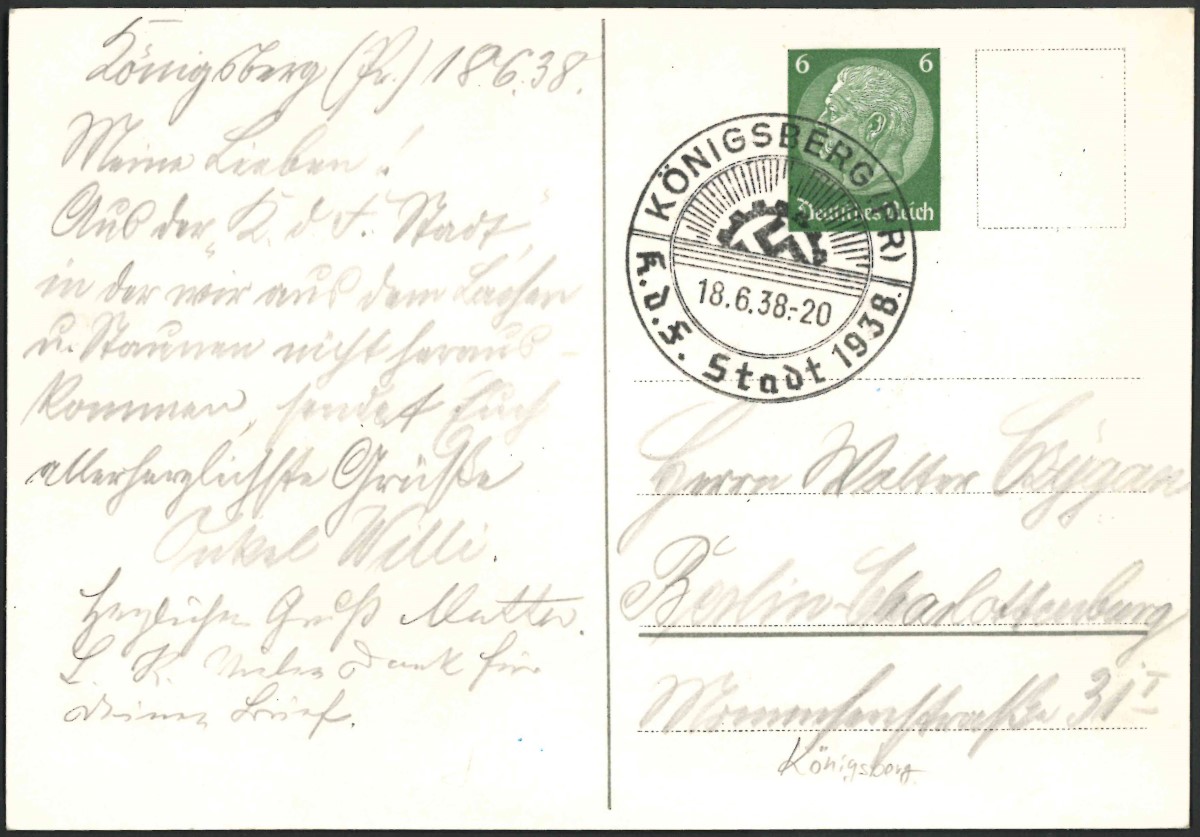 Königsberg (Pr.) 18.6.38.
Meine Lieben!
Aus der „K. d. F. Stadt“,
in der wir aus dem Lachen
u. Staunen nicht heraus-
kommen, sendet Euch
allerherzlichste Grüße
Onkel Willi.
Herzlichen Gruß Mutter.
L. K. Vielen Dank für
Deinen Brief.
6 6
Deutsches Reich
KÖNIGSBERG (PR)
18.6.38.-20
K.d.F. Stadt 1938.
Herrn Walter Czygan
Berlin-Charlottenburg
Mommsenstraße 31 I
Königsberg